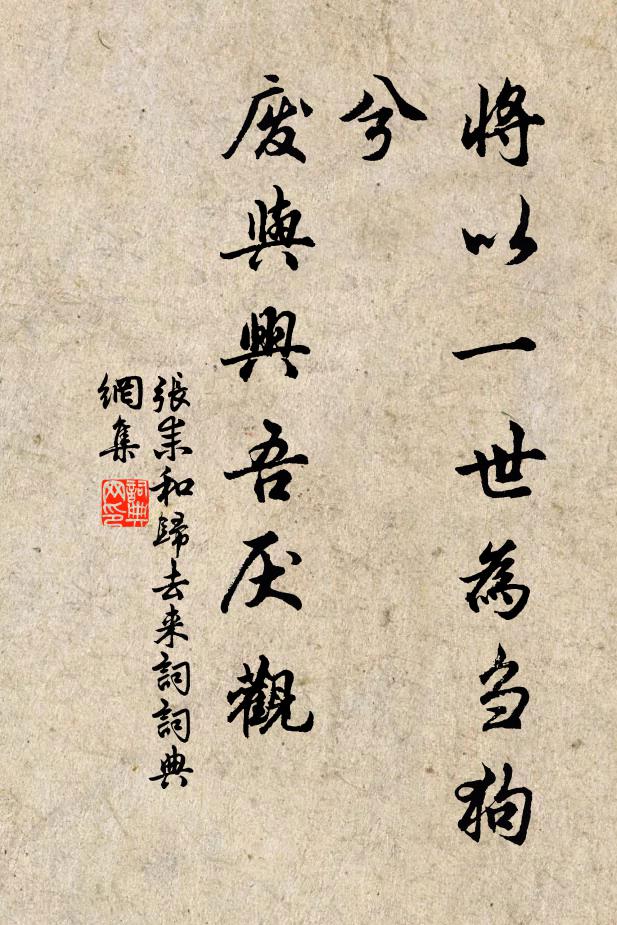 將以一世為刍狗
兮
废與興吾厌觀
張耒和歸去来詞詞典
網集
詞典
网印